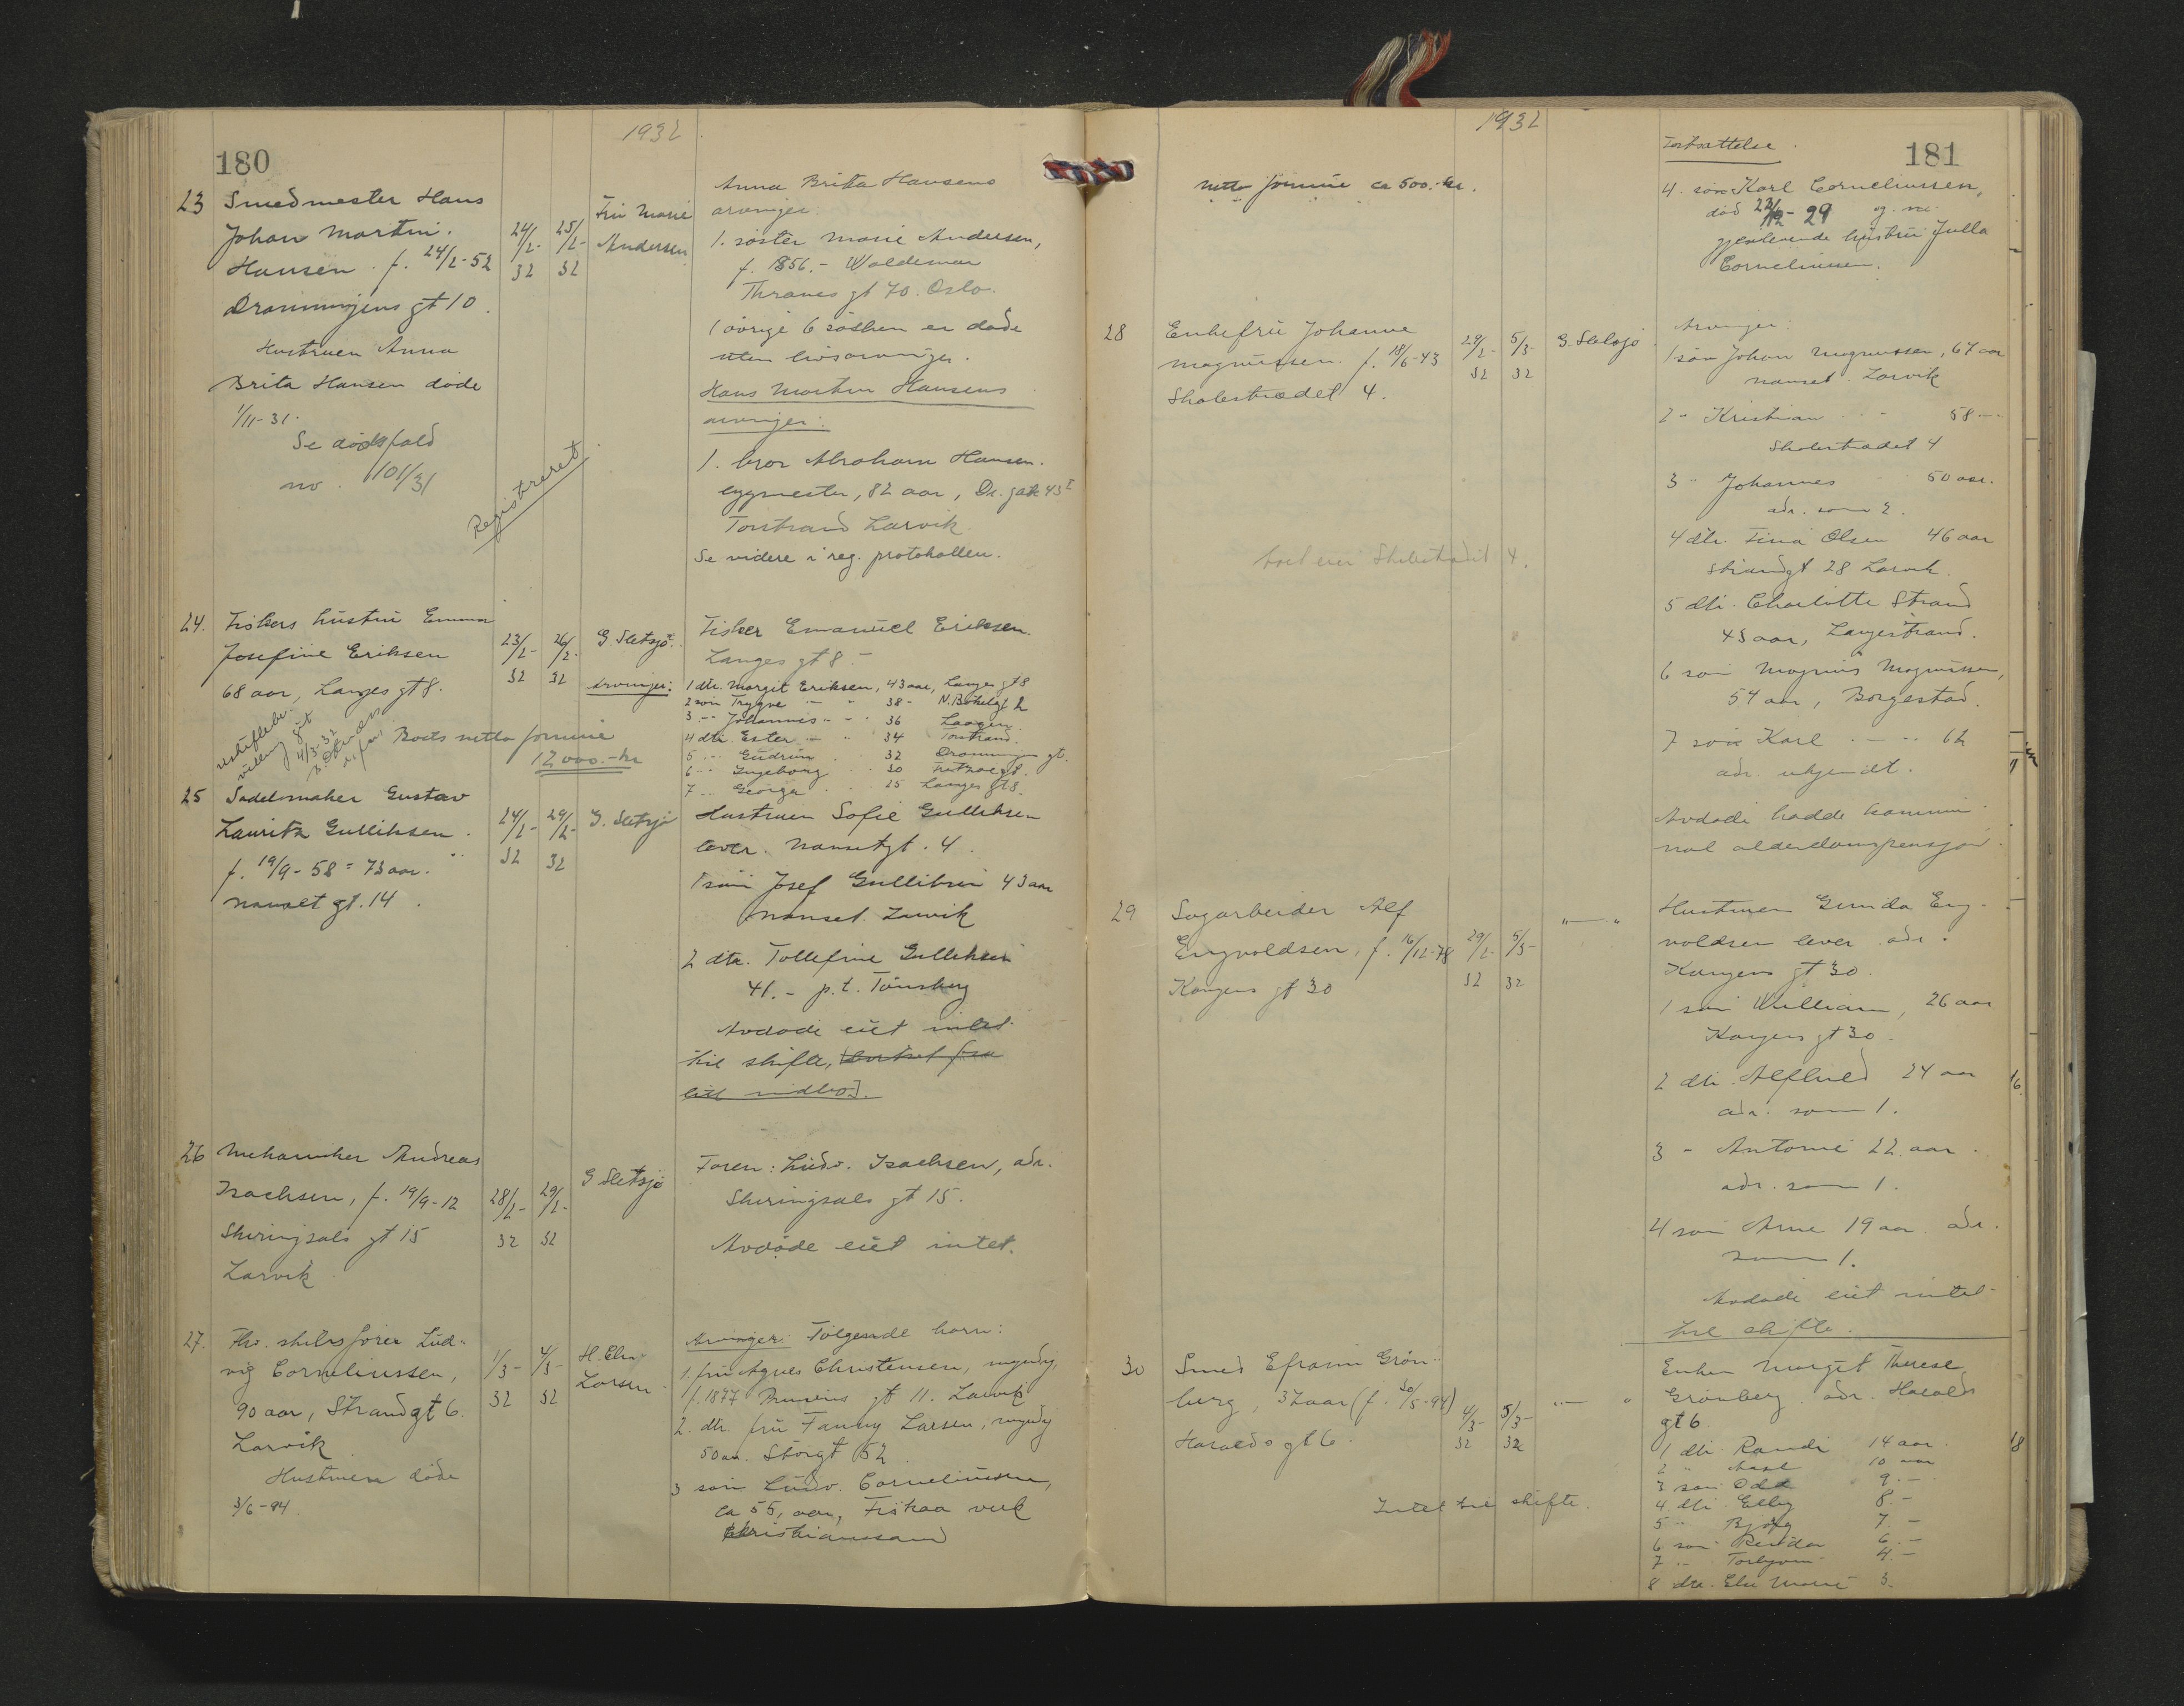 180
1932
23 Smedmester Hans
Johan Martin.
Hansen. f. 24/2-52
Dronningens gt 10.
Hustruen Anna
Brita Hansen døde
1/11-31.
Se dødsfald
no. 101/31
Registreret
24/2-32
25/2-32
Fru Marie
Andersen
Anna Brita Hansens
arvinger.
1. søster Marie Andersen,
f. 1856.- Waldemar
Thranes gt 70. Oslo.
1 øvrige 6 søsken er døde
uten livsarvinger.
Hans Martin Hansens
arvinger:
1. bror Abraham Hansen.
bygmester, 82 aar, Dr. gate 43 I
Torstrand Larvik
Se videre i reg. protokollen.
24. Fiskers hustru Emma
Josefine Eriksen
68 aar, Langes gt 8.
4/3-32
Boets netto formue
12000.-kr
23/2-32
26/2-32
G. Sletsjø.
Fisker Emanuel Eriksen.
Langes gt 8.-
Arvinger: 1 dtr. Margit Eriksen, 43 aar, Langes gt 8
2 søn Trygve - " 38 - N. Bøkelgt 2
3 - " Johannes " - " 36 Laagen
4 dtr. Ester - " 34 Torstrand.
5 - " Gudrun 32 Dronningens gt.
6 - " Ingeborg 30 Fritzøegt.
7 - " Georga 25 Langes gt 8.
25 Sadelmaker Gustav
Lauritz Gulliksen.
f. 19/9-58 = 73 aar.
Nanset gt. 14.
24/2-32
29/2-32
G. Sletsjø
Hustruen Sofie Gulliksen
lever. Nansetgt. 4.
1 søn Josef Gulliksen 43 aar
Nanset. Larvik
2 dtr. Tollefine Gulliksen
41.- p.t. Tønsberg
Avdøde eiet intet
til skifte, bortset fra
litt indbo.
26 Mekaniker Andreas
Isachsen, f. 19/9-12
Skiringsals gt 15
Larvik
28/2-32
29/2-32
G Sletsjø
Faren: Ludv. Isachsen, adr.
Skiringsals gt 15.
Avdøde eiet intet.
27. Fhv. skibsfører Lud-
vig Corneliussen,
90 aar, Strandgt 6.
Larvik
Hustruen døde
3/6-94.
1/3-32
4/3-32
H. Chr.
Larsen
Arvinger: Følgende barn:
1. fru Agnes Christensen, myndig
f. 1877 gt 11. Larvik
2. dtr. fru Fanny Larsen, myndig
50 aar. Storgt 52
3 søn Ludv. Corneliussen,
ca 55, aar, Fiskaa verk
Christianssand
1932
181
Netto formue ca 500.-kr.
Fortsættelse.
4. søn Karl Corneliussen,
død 22/12-29
gjenlevende hustru Julla
Corneliussen.
28 Enkefru Johanne
Magnussen. f. 18/6-43
Skolestrædet 4.
29/2-32
5/3-32
G. Sletsjø
boet eier Skolestrædet 4.
Arvinger:
1 søn Johan Magnussen, 67 aar
Nanset. Larvik
2 - Kristian - 58 -
Skolestrædet 4
3 " Johannes - 50 aar.
adr. som 2.
4 dtr. Tina Olsen 46 aar
Strandgt 28 Larvik.
5 dtr. Charlotte Strand
43 aar, Langestrand.
6 søn Magnus Magnussen,
54 aar, Borgestad.
7 søn Karl - " 62
adr. ukjendt.
Avdøde hadde kommu-
nal alderdomspensjon.
29 Sagarbeider Alf
Engvoldsen, f. 16/12-78
Kongens gt 30
29/2-32
5/3-32
" — "
Hustruen Gunda Eng-
voldsen lever adr.
Kongens gt 30.
1 søn William, 26 aar
Kongens gt 30.
2 dtr. Alfhild 24 aar
adr. som 1.
3 - Antonie 22 aar.
adr. som 1.
4 søn Arne 19 aar adr.
som 1.
Avdøde eiet intet
til skifte.
30 Smed Efraim Grøn-
berg, 37 aar (f. 30/5-94)
Haralds gt 6.
4/3-32
5/3-32
" — "
Intet til skifte.
Enken Margit Therese
Grønberg adr. Haralds
gt 6.
1 dtr. Randi 14 aar.
2 " 10 aar
3 søn Odd 9.-
4 dtr. Elly 8.-
5 " Bjørg 7.-
6 søn Reidar 6.-
7 " Torbjørn 4.-
8 dtr. Else Marie 3.
16.
18